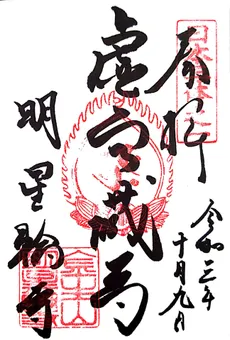 奉拝
虚空蔵尊
明星輪寺
令和三年
十月九日
金生山